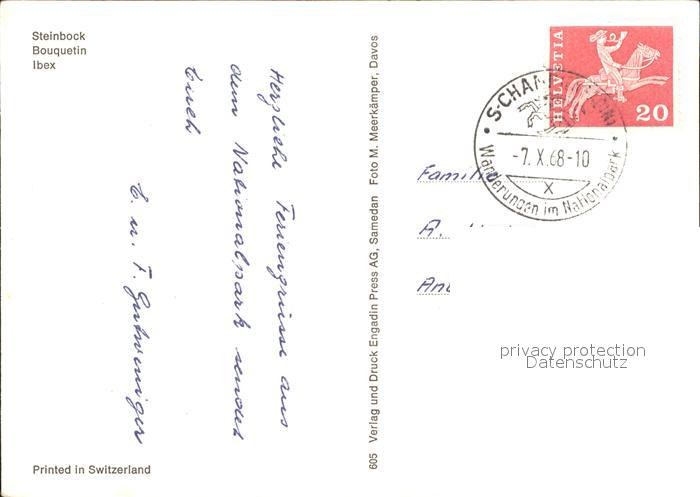 Steinbock
Bouquetin
Ibex
Herzliche Feriengrüsse aus
dem Nationalpark sendet
Euch
E. u. F. Gutweniger
Printed in Switzerland
605 Verlag und Druck Engadin Press AG, Samedan Foto M. Meerkämper, Davos
HELVETIA
20
S-CHAN
-7.X.68-10
X
Wanderungen im Nationalpark
Famili
A.
privacy protection
Datenschutz